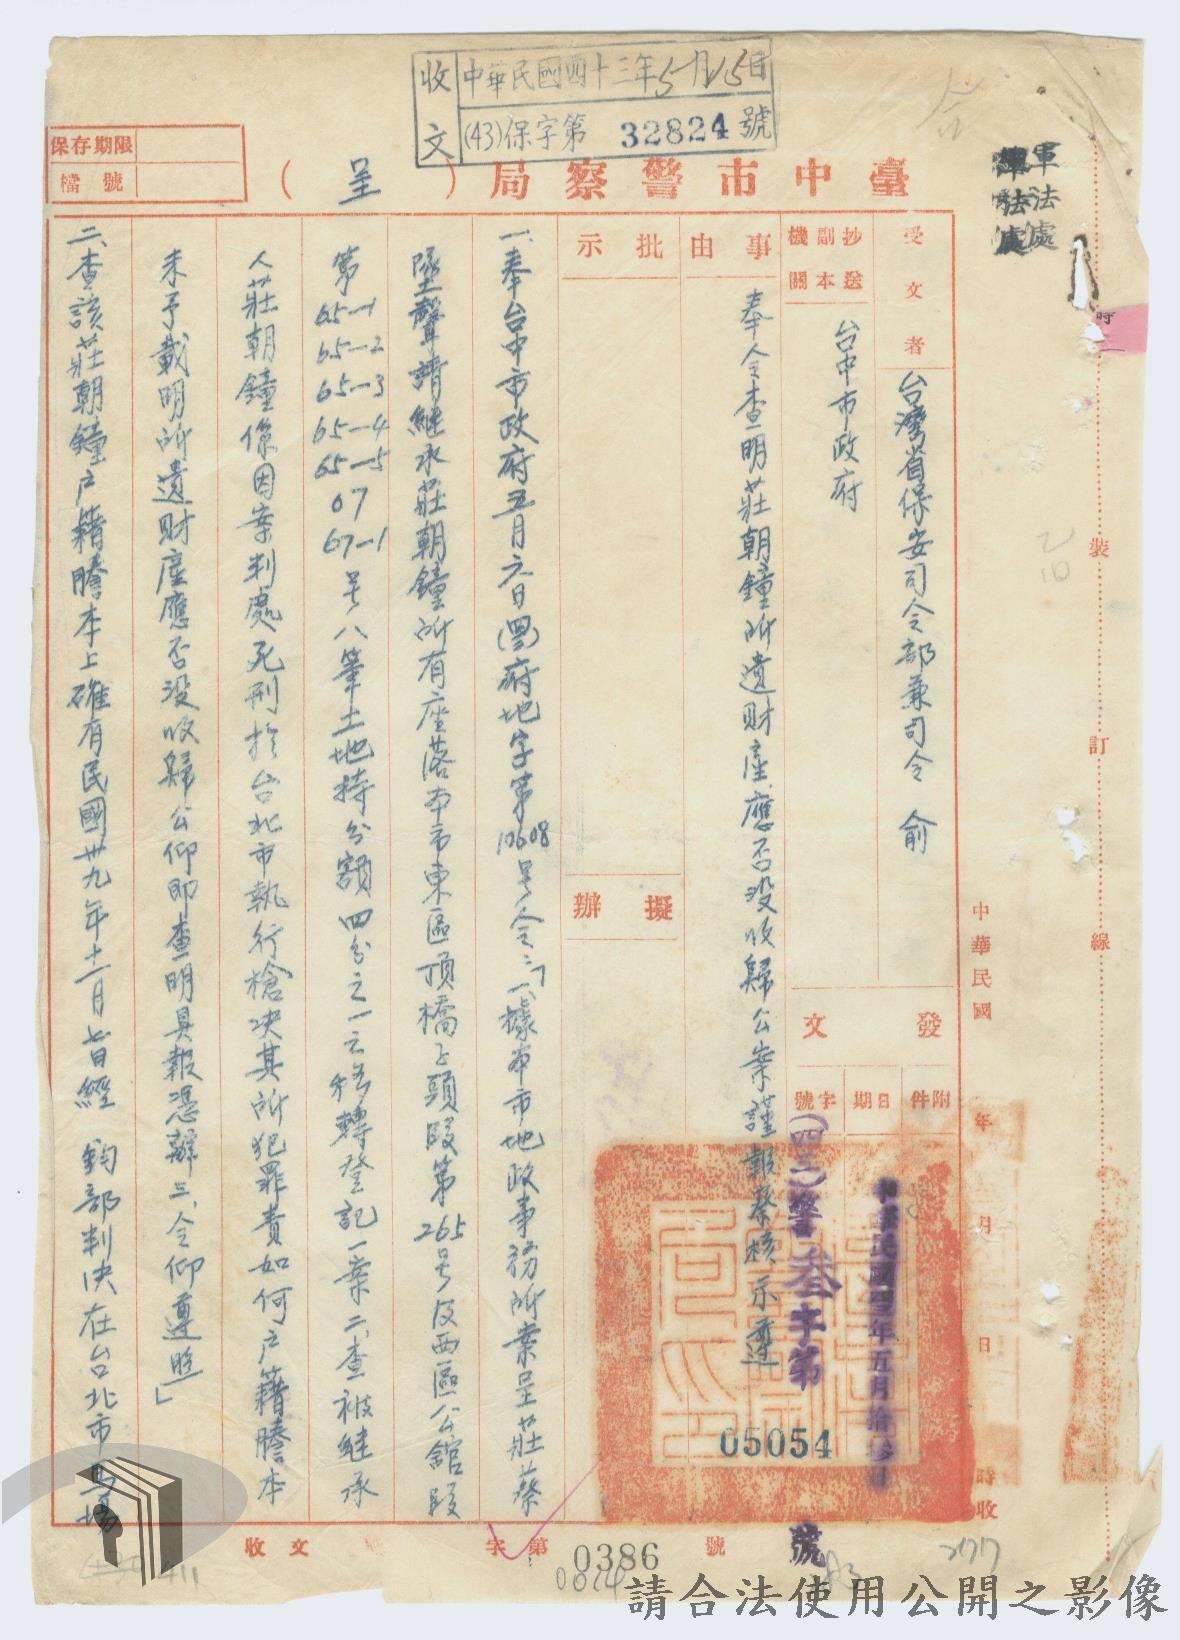 收文
中華民國四十三年5月15日
(43)保字第 32824 號
保存期限
檔號
臺中市警察局(呈)
軍法處
軍法處
受文者
台灣省保安司令部兼司令 俞
抄送副本機關
台中市政府
事由
奉令查明莊朝鐘所遺財產應否沒收歸公案謹報蔡核示遵
批示
擬辦
發文
附件
日期
字號
中華民國四三年五月拾
(四三)警叁字第
05054
號
一、奉台中市政府五月六日(四三)府地字第10608號令:「一、據本市地政事務所案呈莊蔡
墜聲請繼承莊朝鐘所有座落本市東區頂橋子頭段第265號及西區公館段
第65-1 65-2 65-3 65-4 65-5 67 67-1號八筆土地持分額四分之一之移轉登記一案二、查被繼承
人莊朝鐘係因案判處死刑於台北市執行槍决其所犯罪責如何户籍謄本
未予載明所遺財產應否沒收歸公仰即查明具報憑辦三、令仰遵照」
二、查該莊朝鐘户籍謄本上確有民國卅九年十一月七日經 鈞部判决在台北市馬場
中華民國 年 月 日 時收
裝 訂 線
收文 字第 0386 號
0814
277
請合法使用公開之影像